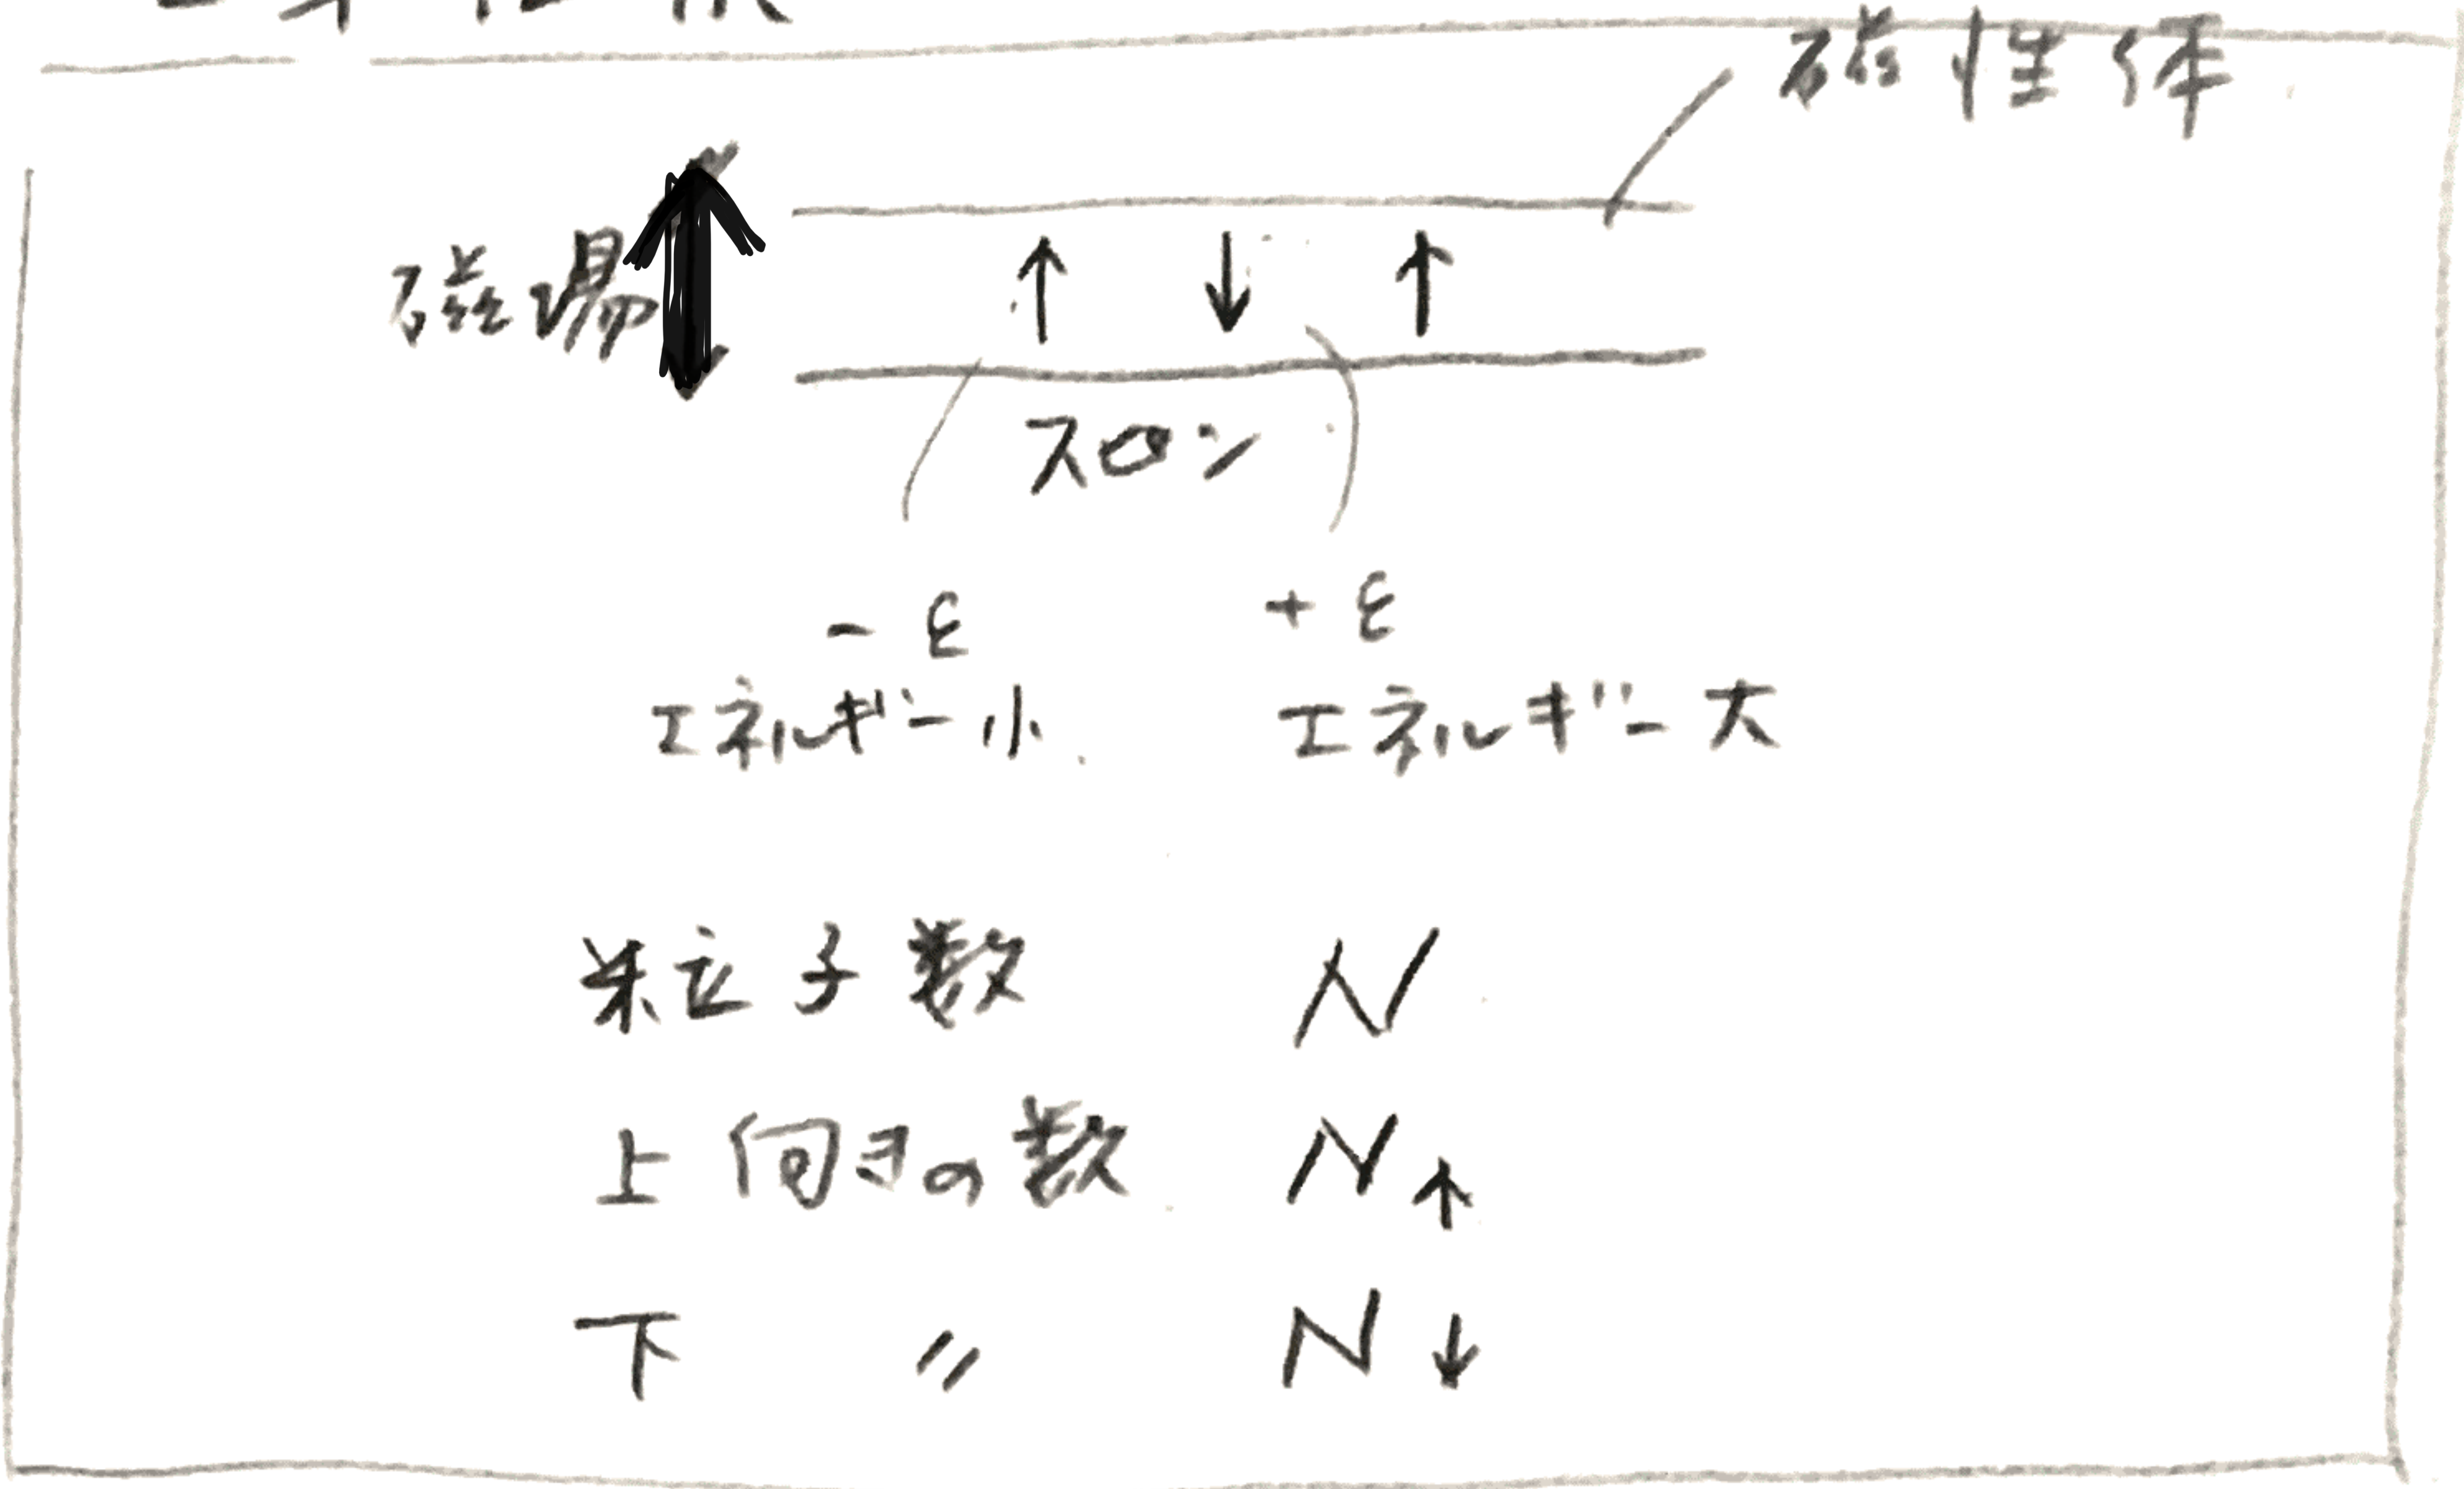 磁性体
磁場
↑ ↓ ↑
スピン
-ε +ε
エネルギー小 エネルギー大
粒子数 N
上向きの数 N↑
下 〃 N↓